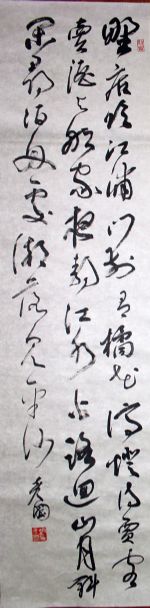 野店临江浦门前有橘花停燈待贾客
賣酒与船家夜静江水白路迴山月斜
闲尋泊舟處潮落見平沙